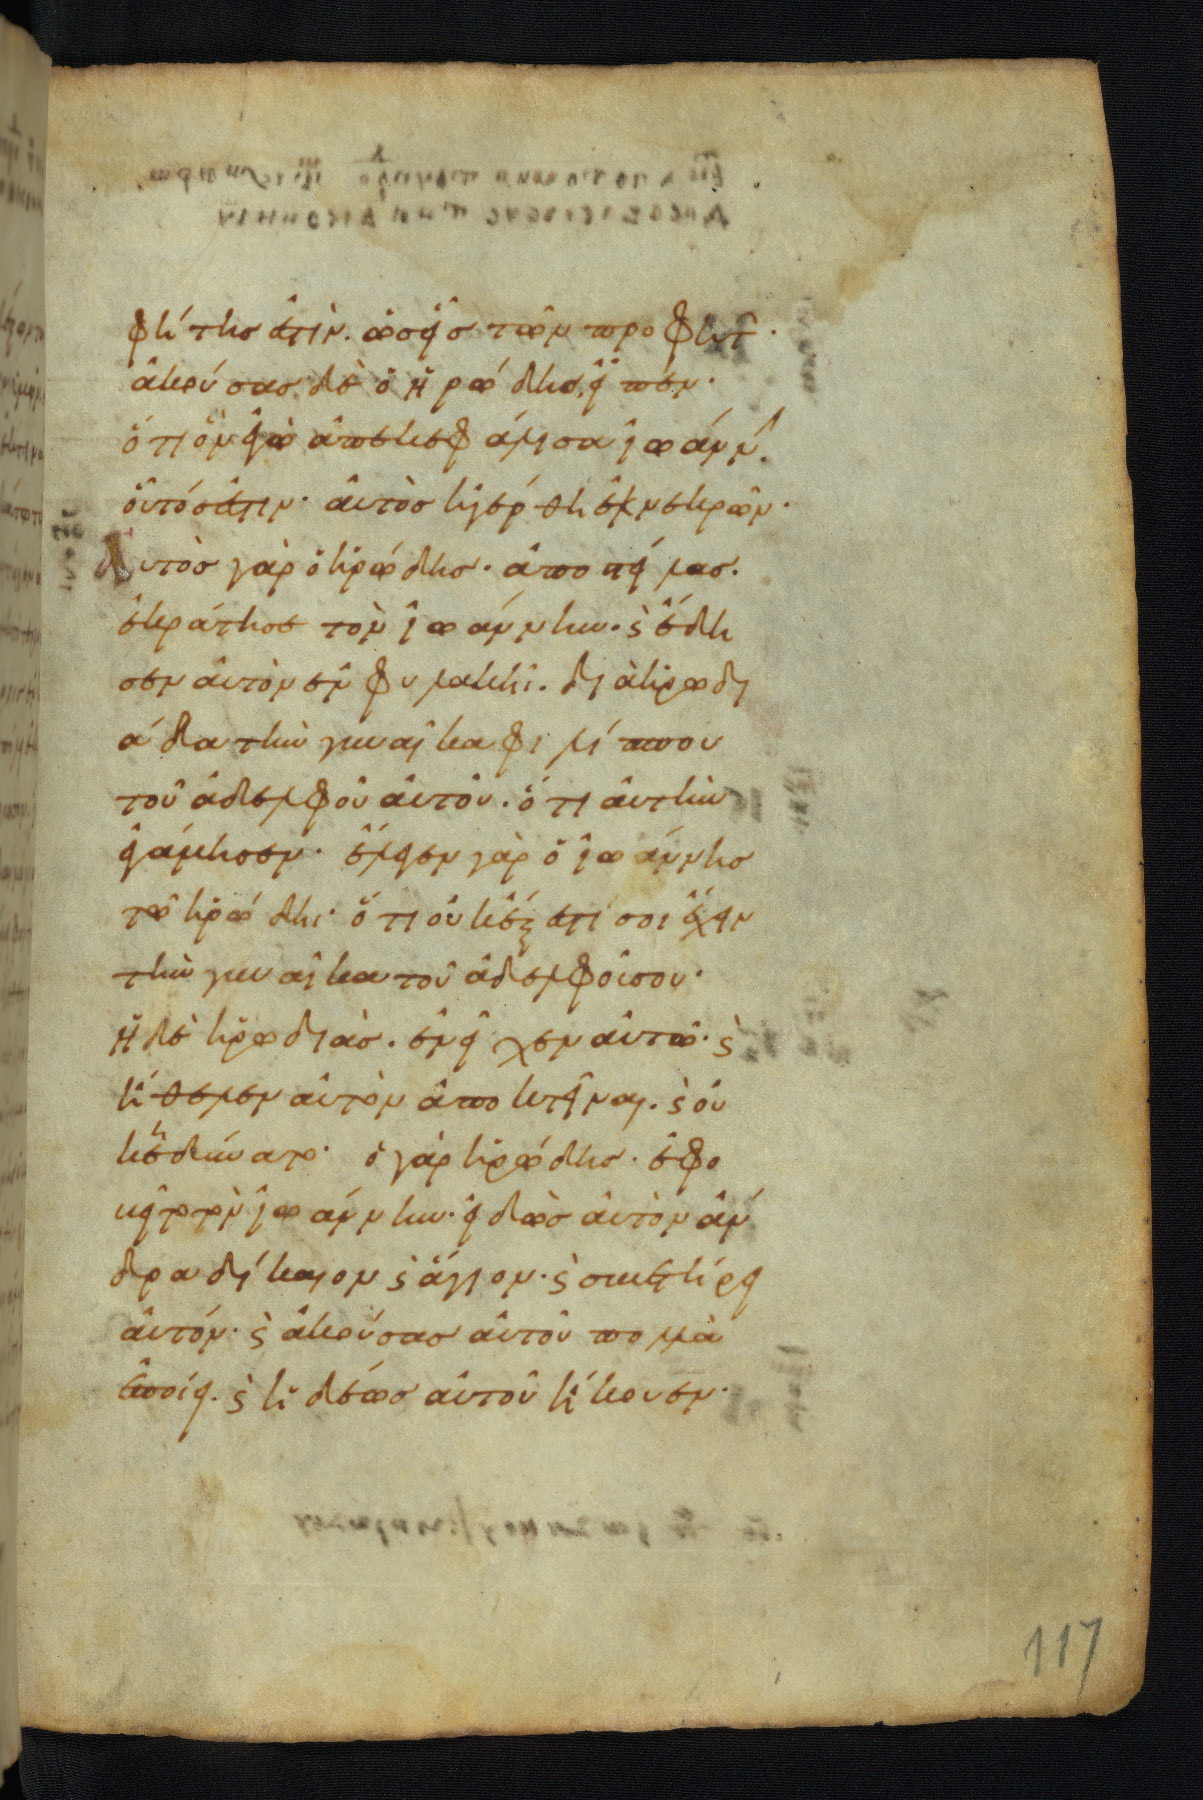 φήτης ἐστὶν. ὡς εἷς τῶν προφητ̑.
ἀκούσας δὲ ὁ ἡρώδης, εἶπεν.
ὅτι ὃν ἐγὼ ἀπεκεφάλισα ἰωάνν.
οὗτός ἐστιν. αὐτὸς ἠγέρθη ἐκ νεκρῶν.
Αὐτὸς γὰρ ὁ ἡρώδης. ἀποστείλας.
ἐκράτησε τὸν ἰωάννην. ϛ ἔδη
σεν αὐτὸν ἐν φυλακῆι. διὰ ἡρωδι
άδα τὴν γυναῖκα φιλίππου
τοῦ ἀδελφοῦ αὐτοῦ. ὅτι αὐτὴν
ἐγάμησεν. ἔλεγεν γὰρ ὁ ἰωάννης
τῷ ἡρώδηι. ὅτι οὐκ ἔξεστί σοι ἔχειν
τὴν γυναῖκα τοῦ ἀδελφοῦ σου.
ἡ δὲ ἡρωδιὰς. ἐνεῖχεν αὐτῶ. ϛ
ἤθελεν αὐτὸν ἀποκτεῖναι. ϛ οὐ
κ ἠδύνατο. ὁ γὰρ ἡρώδης. ἐφο
βεῖτο τὸν ἰωάννην. εἰδὼς αὐτὸν ἄν
δρα δίκαιον ϛ ἅγιον. ϛ συνετήρει
αὐτόν. ϛ ἀκούσας αὐτοῦ πολλὰ
ἐποίει. ϛ ἡδέως αὐτοῦ ἤκουεν.
117